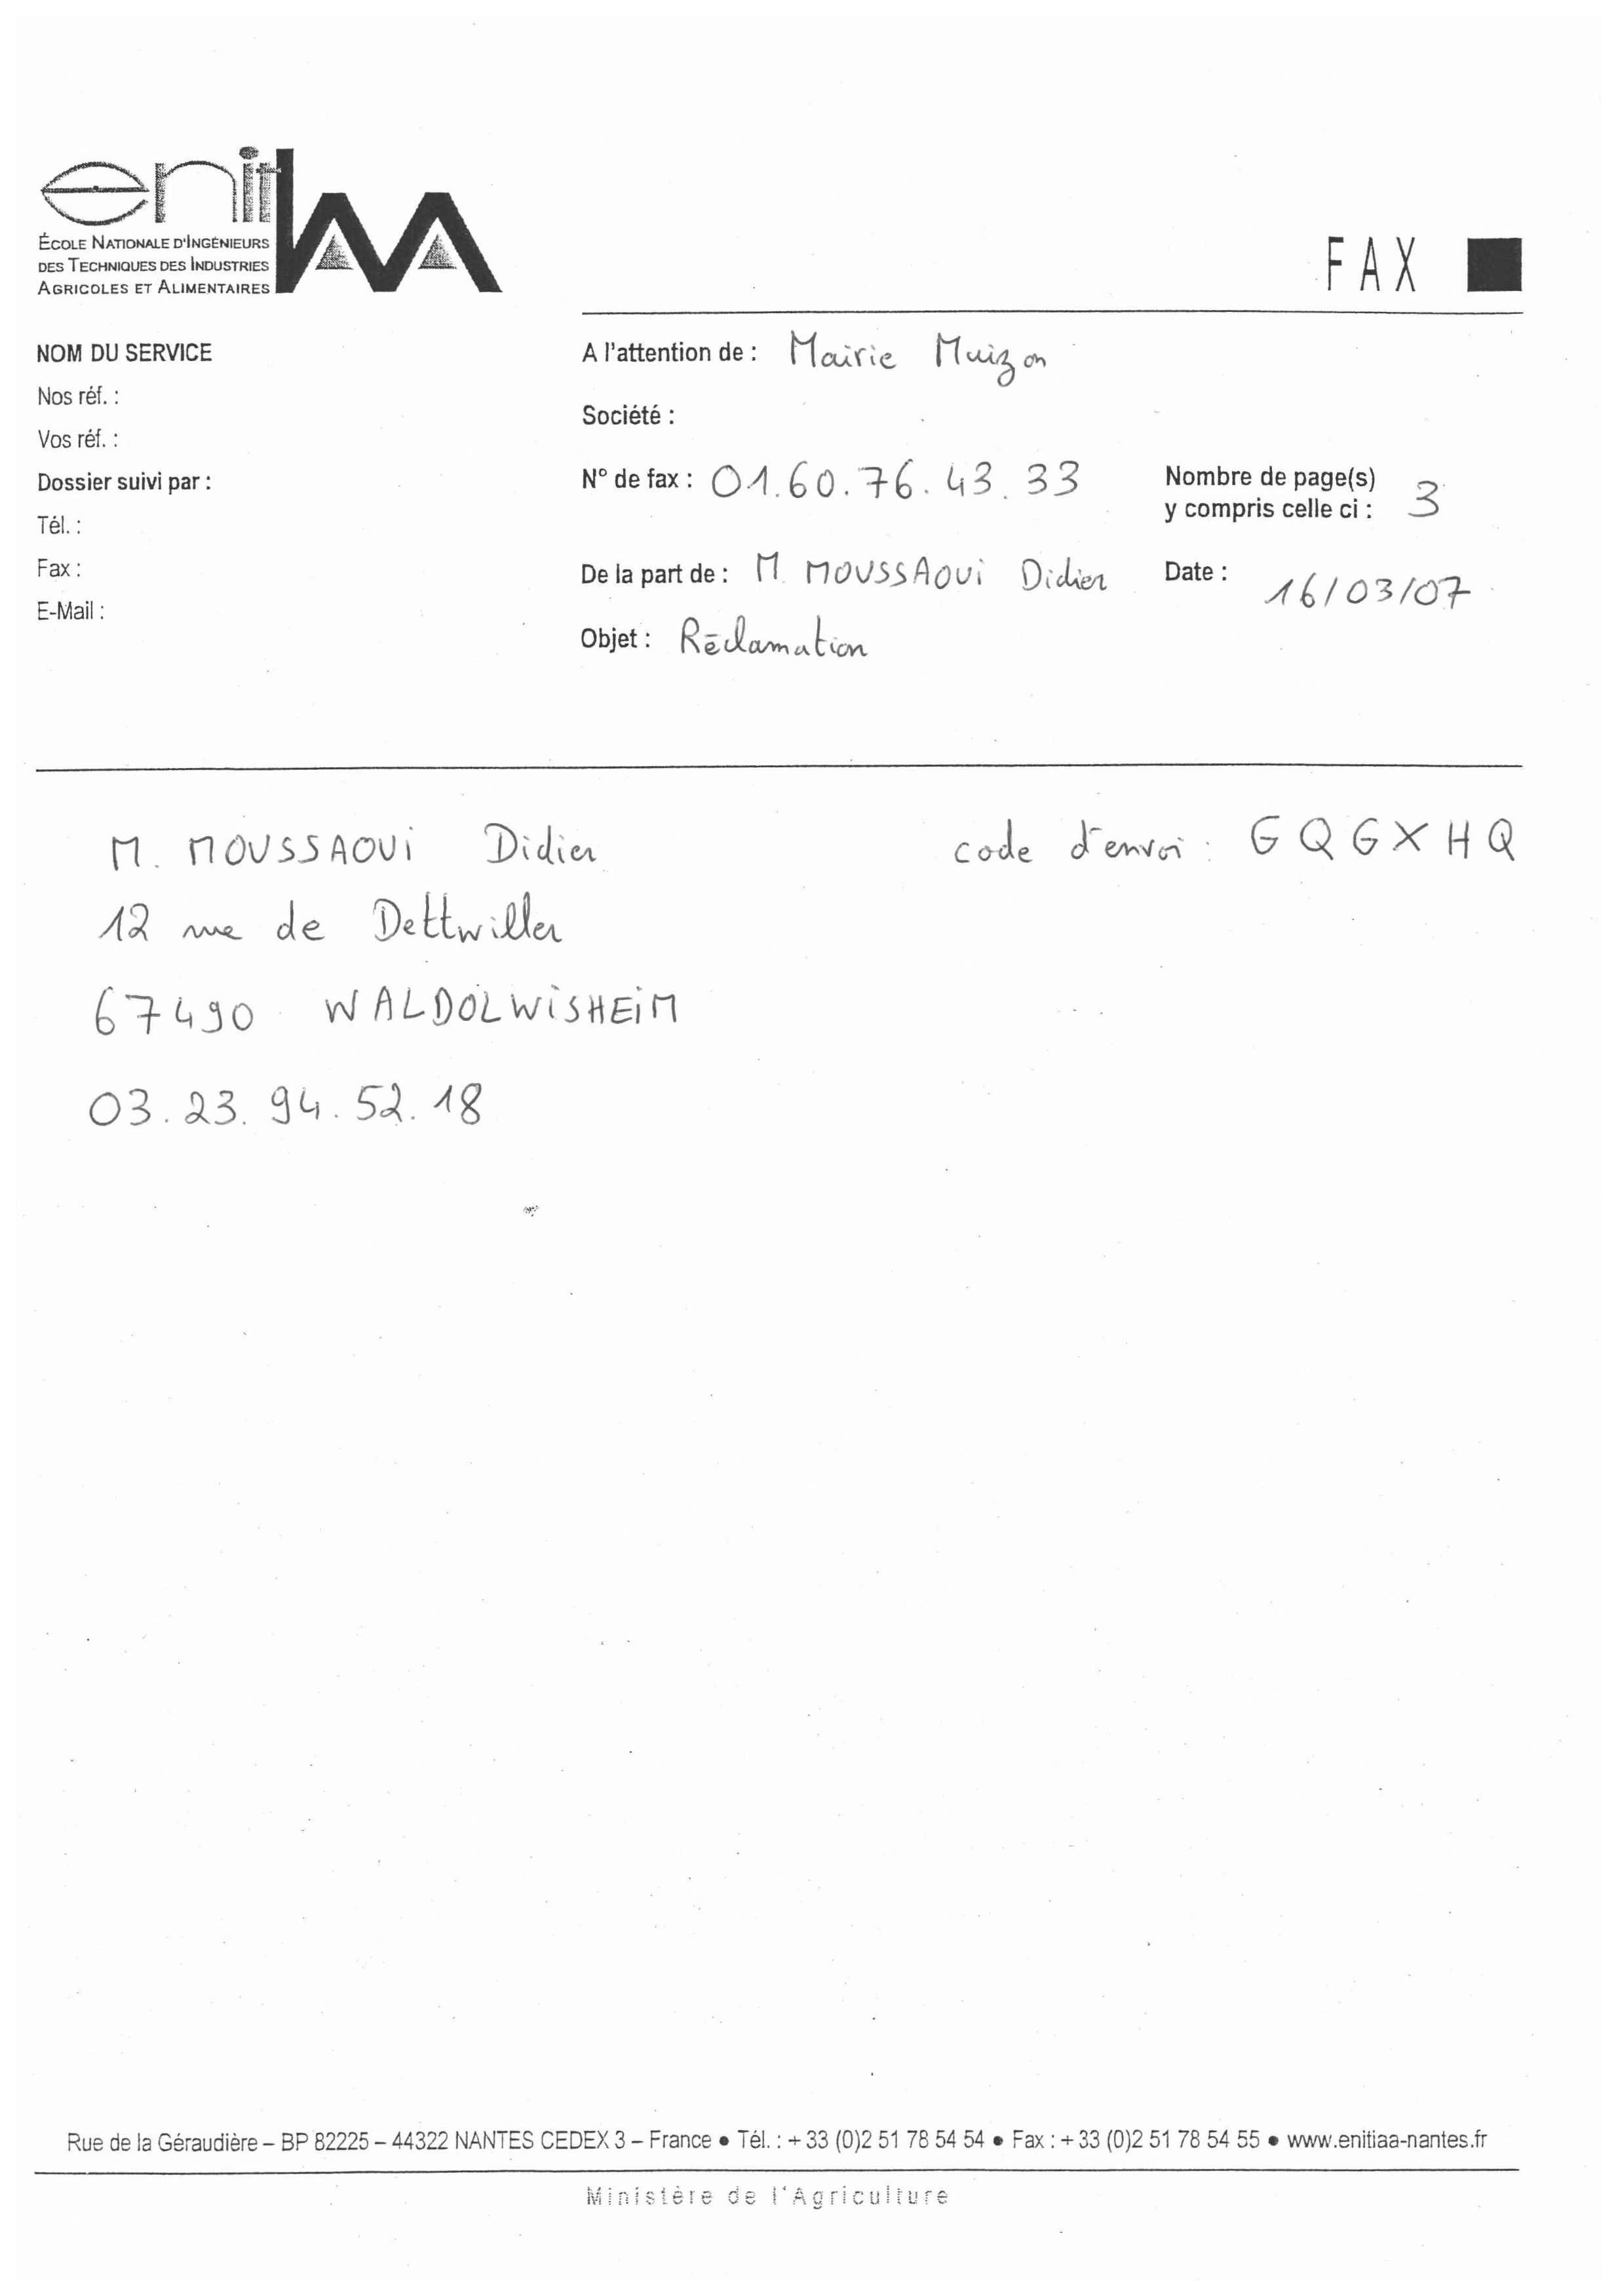 enitIAA
ÉCOLE NATIONALE D'INGÉNIEURS
DES TECHNIQUES DES INDUSTRIES
AGRICOLES ET ALIMENTAIRES
FAX
NOM DU SERVICE
Nos réf. :
Vos réf. :
Dossier suivi par :
Tél. :
Fax :
E-Mail :
A l'attention de : Mairie Muizon
Société :
N° de fax : 01.60.76.43.33
Nombre de page(s)
y compris celle ci : 3
De la part de : M. MOUSSAOUi Didier
Date : 16/03/07
Objet : Réclamation
M. MOUSSAOUi Didier
code d'envoi : GQGXHQ
12 rue de Dettwiller
67490 WALDOLWiSHEiM
03.23.94.52.18
Rue de la Géraudière – BP 82225 – 44322 NANTES CEDEX 3 – France ● Tél. : + 33 (0)2 51 78 54 54 ● Fax : + 33 (0)2 51 78 54 55 ● www.enitiaa-nantes.fr
Ministère de l'Agriculture